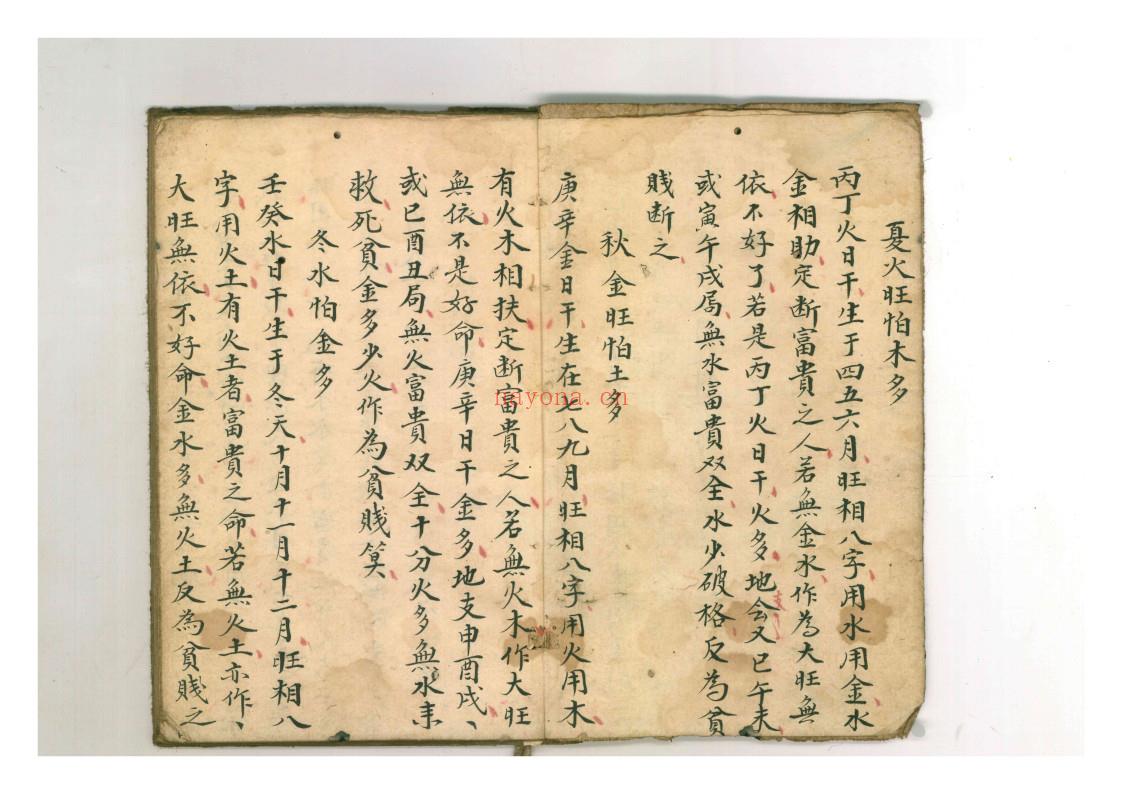 夏火旺怕木多
丙丁火日干生于四五六月旺相八字用水用金水
金相助定断富貴之人若無金水作為大旺無
依不好了若是丙丁火日干火多地会又巳午未
或寅午戌局無水富貴双全水少破格反為貧
賎断之
秋金旺怕土多
庚辛金日干生在七八九月旺相八字用火用木
有火木相扶定断富貴之人若無火木作大旺
無依不是好命庚辛日干金多地支申酉戌、
或巳酉丑局無火富貴双全十分火多無水来
救死貧金多少火作為貧賎算
冬水怕金多
壬癸水日干生于冬天十月十一月十二月旺相八
字用火土有火土者富貴之命若無火土亦作、
大旺無依不好命金水多無火土反為貧賎之
nayona.cn